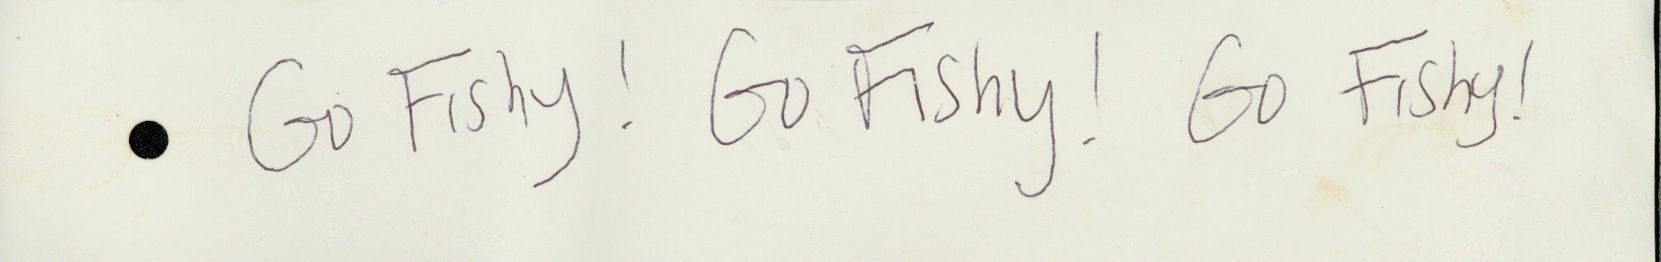 Go Fishy! Go Fishy! Go Fishy!